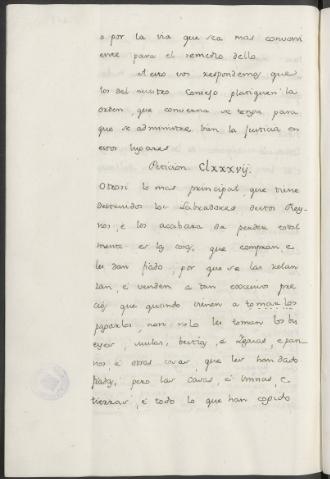 o por la via que sea mas conveni
ente para el remedio dello
A esto vos respondemos que
los del nuestro Consejo platiquen la
orden, que converna se tenga para
que se administre bien la justicia en
estos lugares
Peticion Clxxxvij.
Otrosi lo mas principal que tiene
destruidos los Labradores destos Rey-
nos, e los acabara de perder total
mente es las cosas, que compran, e
les dan fiado, por que se las
dan, e venden a tan excesivos pre
cios que quando vienen a tomarlos
pagarlos, non solo les toman los bu
eyes, mulas, bestias, e e pan-
nos, e otras cosas, que les han dado
fiadas, pero las casas, e vinnas, e
tierras, e todo lo que han cogido